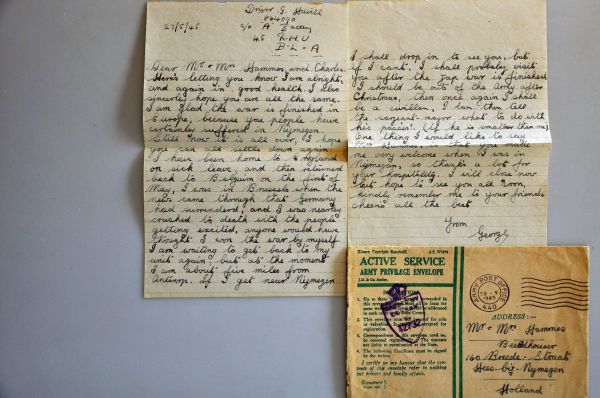 Driver G.
27/5/45
c/o "A" Battery
45 R-H-U
B-L-A
Dear Mr + Mrs Hammes, and Charles
Here's letting you know I am alright
and again in good health. I also
sincerely hope you are all the same.
I am glad the war is finished in
Europe, because you people have
certainly suffered in Nijmegen.
Still now it is all over, I hope
you can all settle down again
I have been home to England
on sick leave, and then returned
back to Belgium on the first of
May, I was in Brussels when the
news came through that Germany
had surrendered, and I was nearly
crushed to death with the people
getting excited, anyone would have
thought I won the war by myself
I am waiting to get back to my
unit again but at the moment
I am about five miles from
Antwerp. If I get near Nijmegen
I shall drop in to see you, but
if I can't. I shall probably visit
you after the Jap war is finished
I should be out of the Army after
Christmas, then once again I shall
be a civilian, I can then tell
the sargeant-major what to do with
his passes!. (If he is smaller than me)
One thing I would like to say
Mrs Hammes, is that you made
me very welcome when I was in
Nijmegen, so thanks a lot for
your hospitality. I will close now
but hope to see you all soon,
kindly remember me to your friends
cheerio all the best
From
George
ACTIVE SERVICE
ARMY PRIVILEGE ENVELOPE
ARMY POST OFFICE
1945
440
ADDRESS:—
Mr + Mrs Hammes
160 Breede-Straat
Hees-bij-Nijmegen
Holland